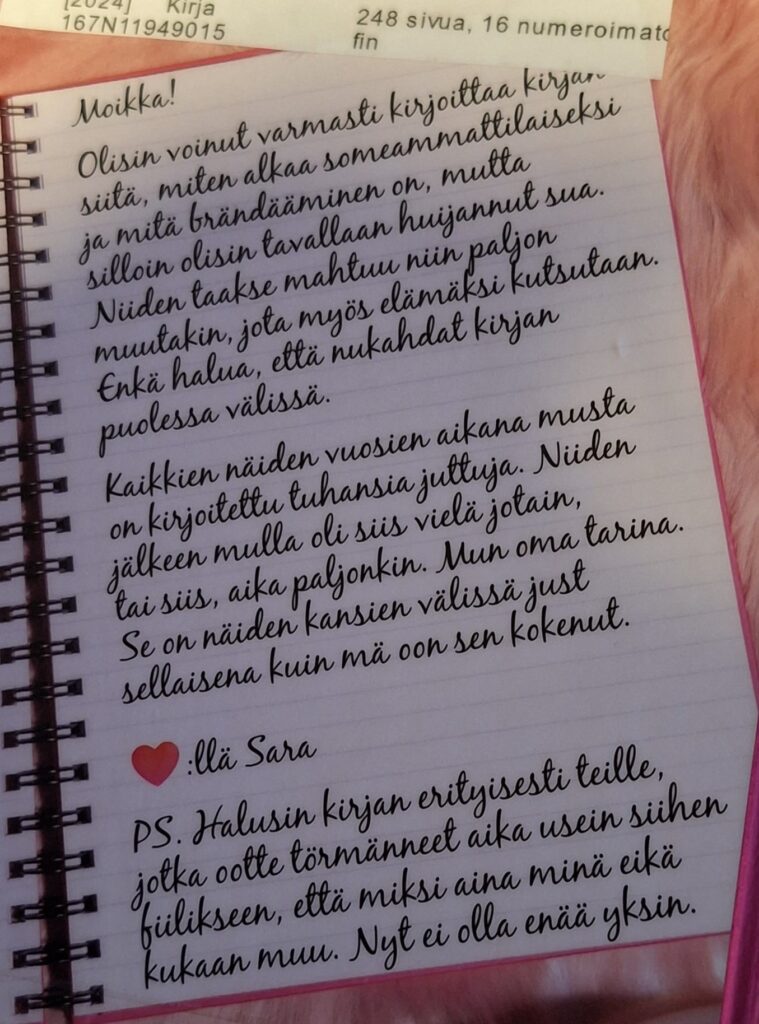 [2024] Kirja
167N11949015
248 sivua, 16 numeroimato
fin
Moikka!
Olisin voinut varmasti kirjoittaa kirjan
siitä, miten alkaa someammattilaiseksi
ja mitä brändääminen on, mutta
silloin olisin tavallaan huijannut sua.
Niiden taakse mahtuu niin paljon
muutakin, jota myös elämäksi kutsutaan.
Enkä halua, että nukahdat kirjan
puolessa välissä.
Kaikkien näiden vuosien aikana musta
on kirjoitettu tuhansia juttuja. Niiden
jälkeen mulla oli siis vielä jotain,
tai siis, aika paljonkin. Mun oma tarina.
Se on näiden kansien välissä just
sellaisena kuin mä oon sen kokenut.
❤:llä Sara
PS. Halusin kirjan erityisesti teille,
jotka ootte törmänneet aika usein siihen
fiilikseen, että miksi aina minä eikä
kukaan muu. Nyt ei olla enää yksin.